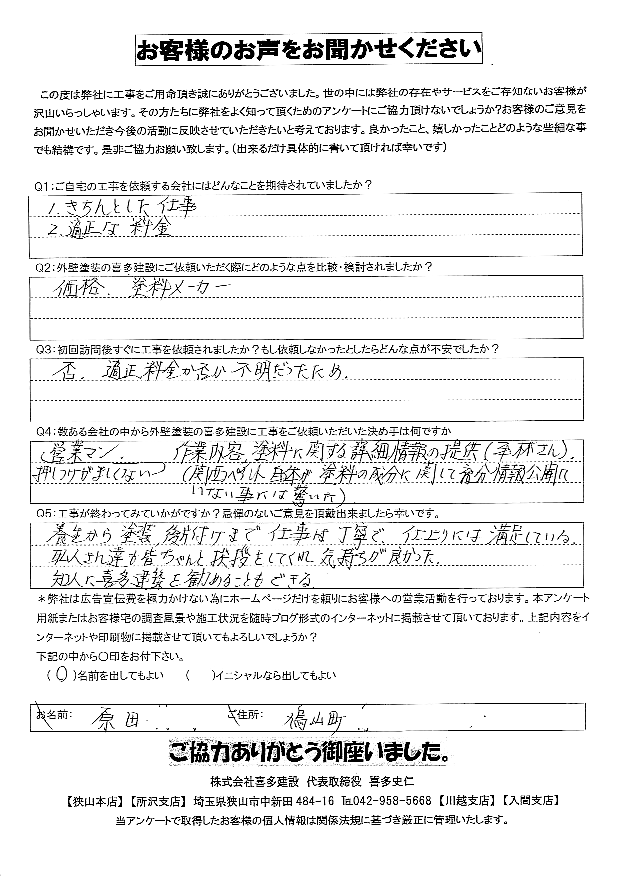 お客様のお声をお聞かせください
この度は弊社に工事をご用命頂き誠にありがとうございました。世の中には弊社の存在やサービスをご存知ないお客様が
沢山いらっしゃいます。その方たちに弊社をよく知って頂くためのアンケートにご協力頂けないでしょうか?お客様のご意見を
お聞かせいただき今後の活動に反映させていただきたいと考えております。良かったこと、嬉しかったことどのような些細な事
でも結構です。是非ご協力お願い致します。(出来るだけ具体的に書いて頂ければ幸いです)
Q1:ご自宅の工事を依頼する会社にはどんなことを期待されていましたか?
1. きちんとした仕事
2. 適正な 料金
Q2:外壁塗装の喜多建設にご依頼いただく際にどのような点を比較・検討されましたか?
価格、塗料メーカー
Q3:初回訪問後すぐに工事を依頼されましたか?もし依頼しなかったとしたらどんな点が不安でしたか?
否、適正料金か否か不明だったため。
Q4:数ある会社の中から外壁塗装の喜多建設に工事をご依頼いただいた決め手は何ですか
営業マン、 作業内容、塗料に関する詳細情報の提供(平林さん)。
押しつけがましくない (関西ペイント自体が塗料の成分に関して充分情報公開に
いない事には驚いた)
Q5:工事が終わってみていかがですか?忌憚のないご意見を頂戴出来ましたら幸いです。
養生から塗装、後片付けまで仕事は丁寧で、仕上りには満足している。
職人さん達が皆ちゃんと挨拶をしてくれ気持ちが良かった。
知人に喜多建設を勧めることもできる。
*弊社は広告宣伝費を極力かけない為にホームページだけを頼りにお客様への営業活動を行っております。本アンケート
用紙またはお客様宅の調査風景や施工状況を随時ブログ形式のインターネットに掲載させて頂いております。上記内容をイ
ンターネットや印刷物に掲載させて頂いてもよろしいでしょうか?
下記の中から○印をお付下さい。
(○)名前を出してもよい ( )イニシャルなら出してもよい
お名前: 原田 住所: 鳩山町
ご協力ありがとう御座いました。
株式会社喜多建設 代表取締役 喜多史仁
【狭山本店】【所沢支店】 埼玉県狭山市中新田484-16 ℡042-958-5668 【川越支店】【入間支店】
当アンケートで取得したお客様の個人情報は関係法規に基づき厳正に管理いたします。